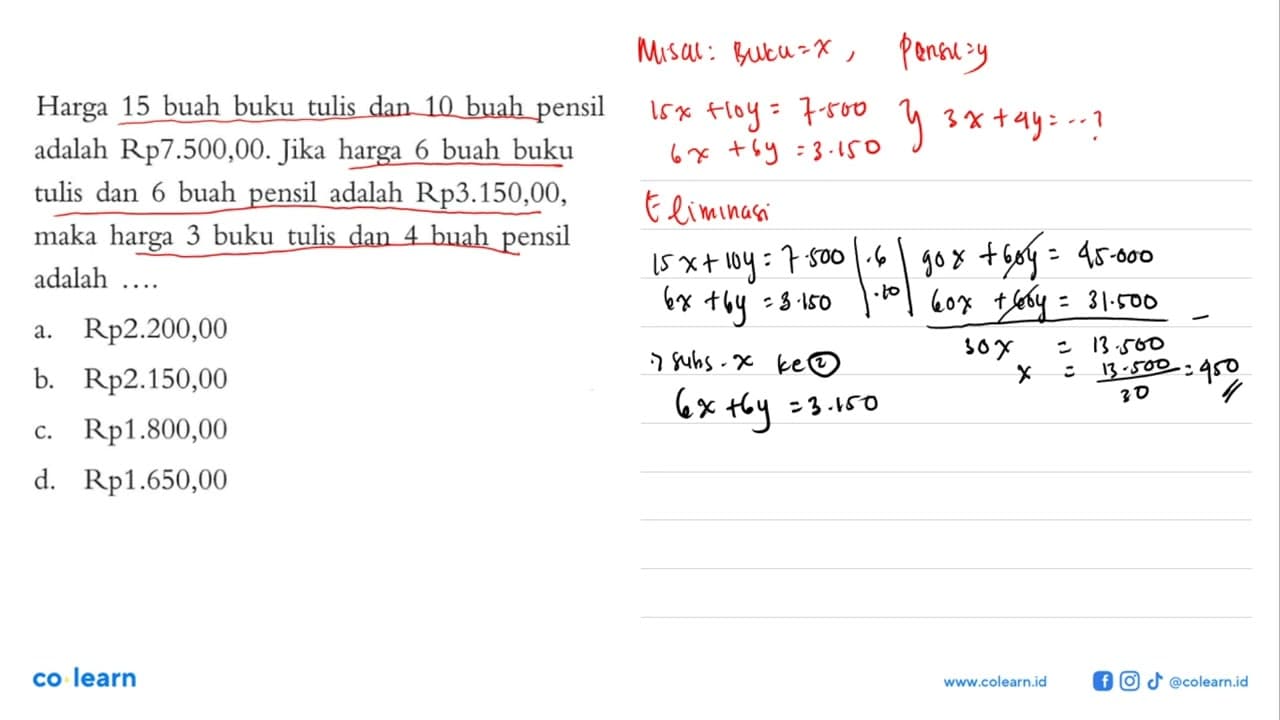 Harga 15 buah buku tulis dan 10 buah pensil
adalah Rp7.500,00. Jika harga 6 buah buku
tulis dan 6 buah pensil adalah Rp3.150,00,
maka harga 3 buku tulis dan 4 buah pensil
adalah ....
a. Rp2.200,00
b. Rp2.150,00
c. Rp1.800,00
d. Rp1.650,00
Misal: Buku = x, Pensil = y
15x + 10y = 7.500 } 3x + 4y = ...?
6x + 6y = 3.150
Eliminasi
15x + 10y = 7.500 | .6 | 90x + 60y = 45.000
6x + 6y = 3.150 | .10 | 60x + 60y = 31.500 –
30x = 13.500
x = 13.500/30 = 450 //
-> subs. x ke ②
6x + 6y = 3.150
co learn
www.colearn.id
@colearn.id